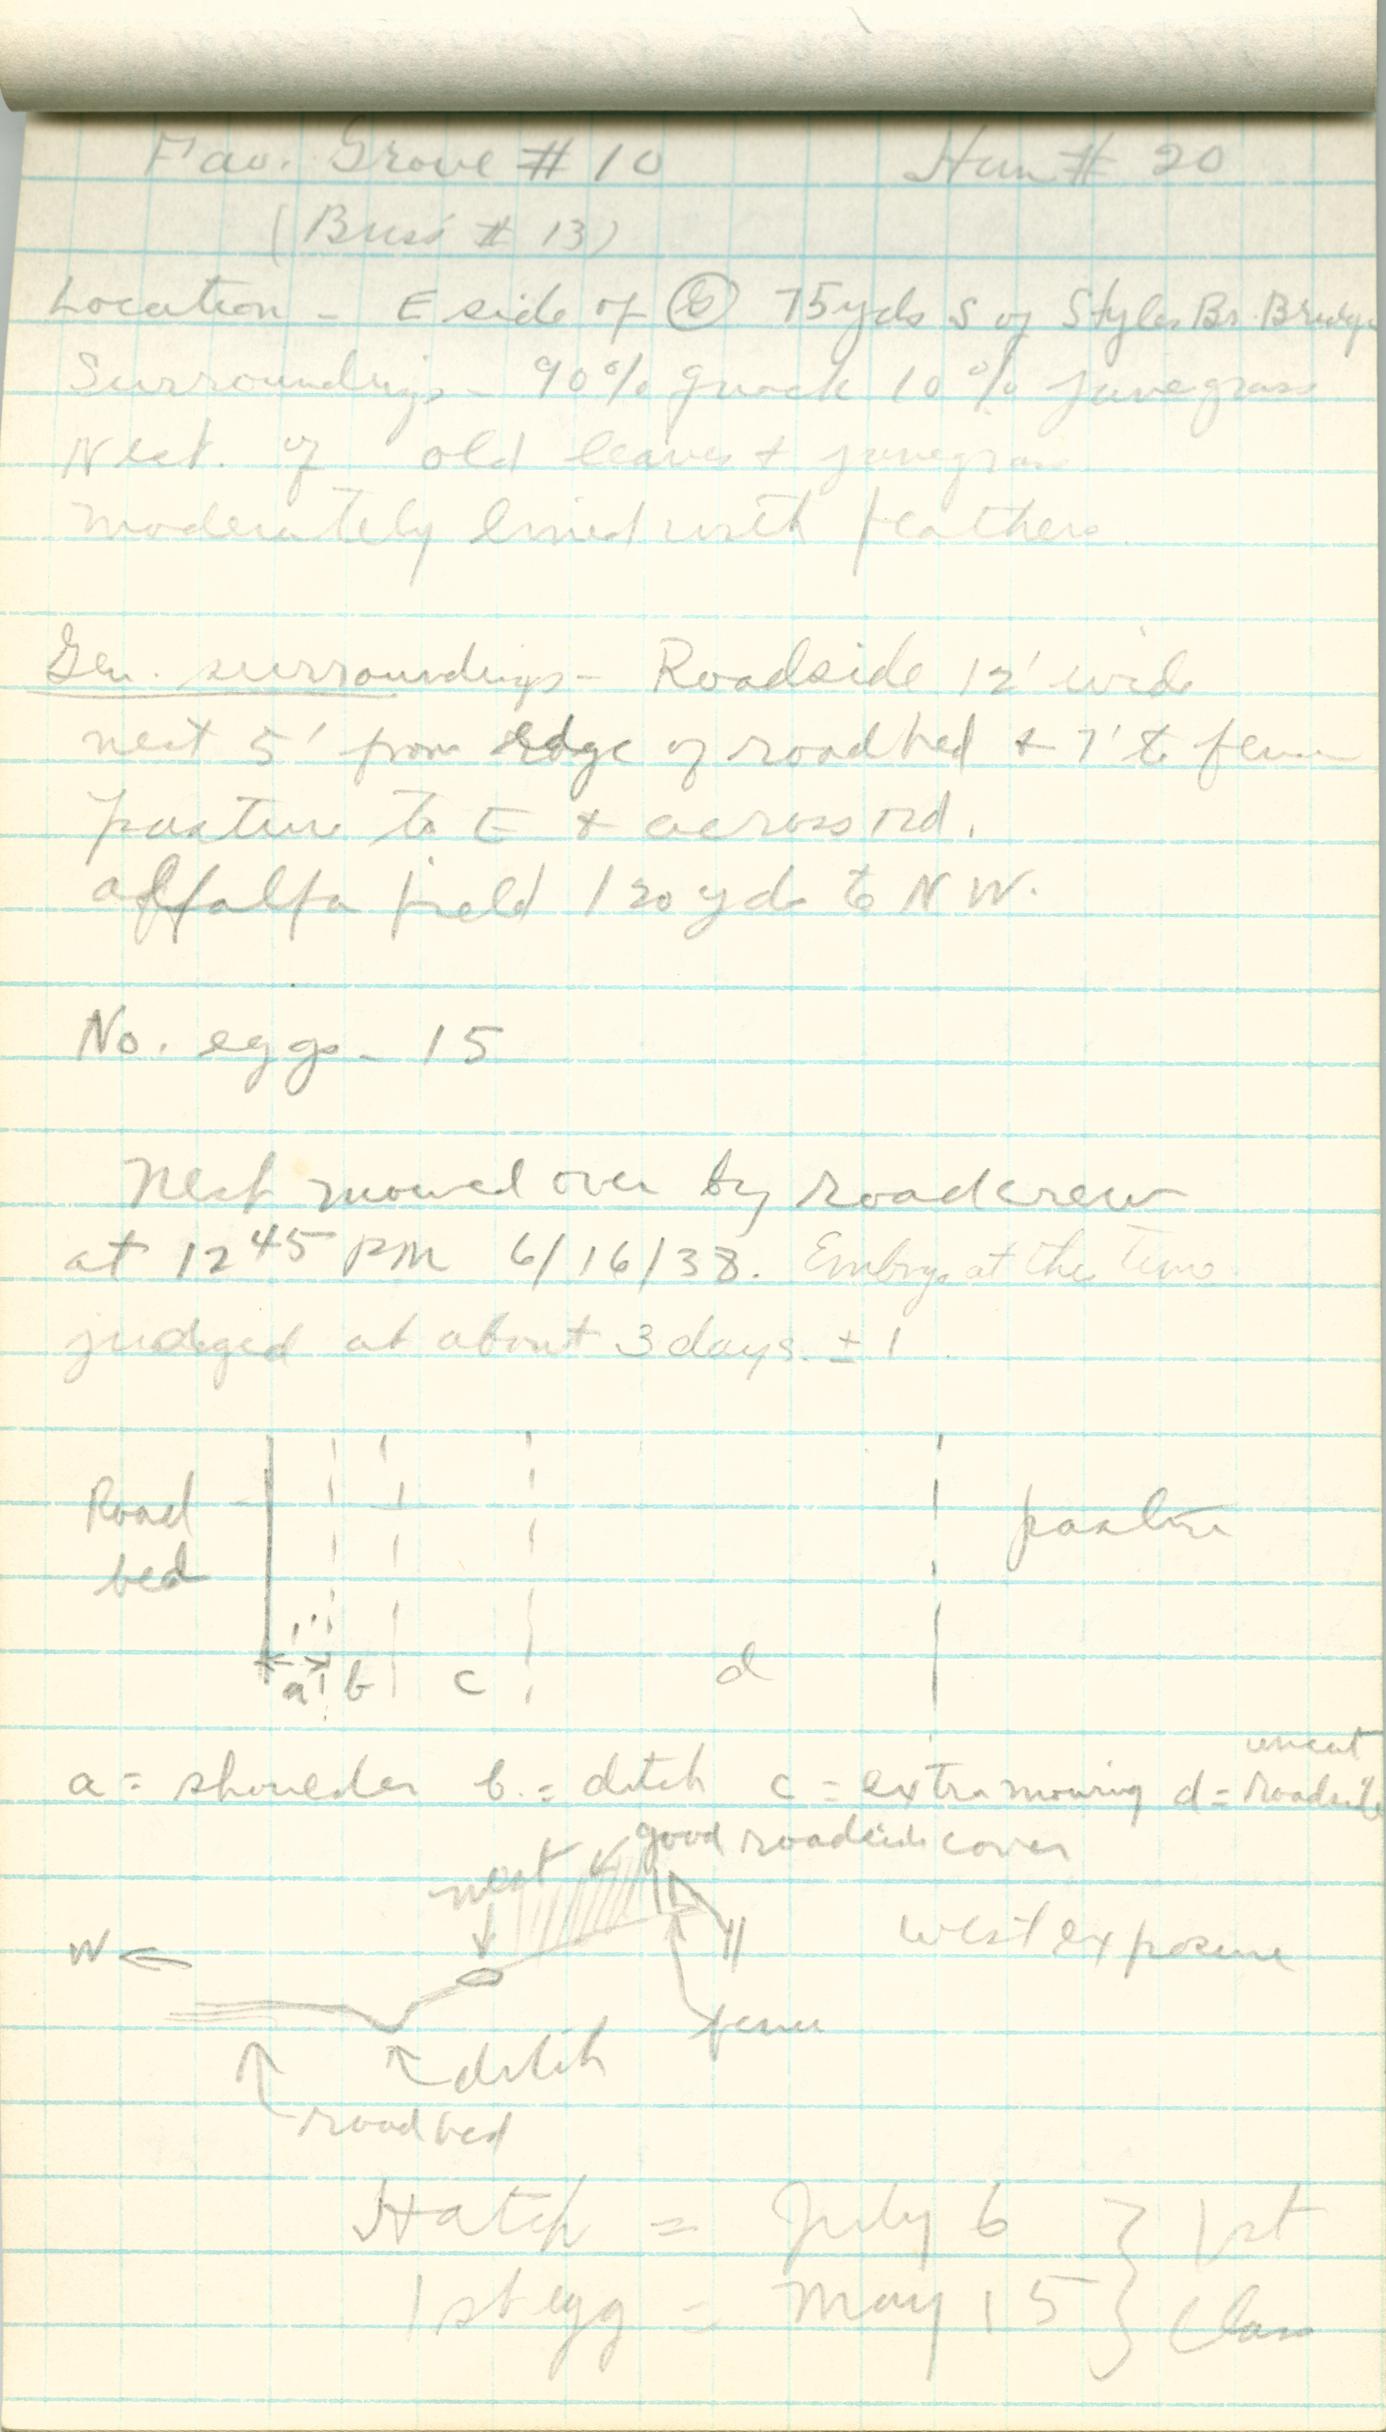 Fav. Grove # 10 Hun # 20
(Buss # 13)
Location - E side of 75 yds S of Styles Br. Bridge
Surroundings - 90% quack 10% junegrass
Nest. of old leaves + junegrass
moderately lined with feathers.
Gen. surroundings - Roadside 12' wide
nest 5' from edge of roadbed + 7' to fence
pasture to E + across rd.
alfalfa field 120 yds to N W.
No. eggs - 15
Nest mowed over by roadcrew
at 12 45 PM 6/16/38. Embryo at the time
judged at about 3 days. ± 1.
Road
bed
pasture
a b c d
a = shoulder b. = ditch c = extra mowing d = uncut roadside
good roadside cover
nest
W
west exposure
fence
ditch
roadbed
Hatch = July 6 } 1st
1st egg = May 15 } Class